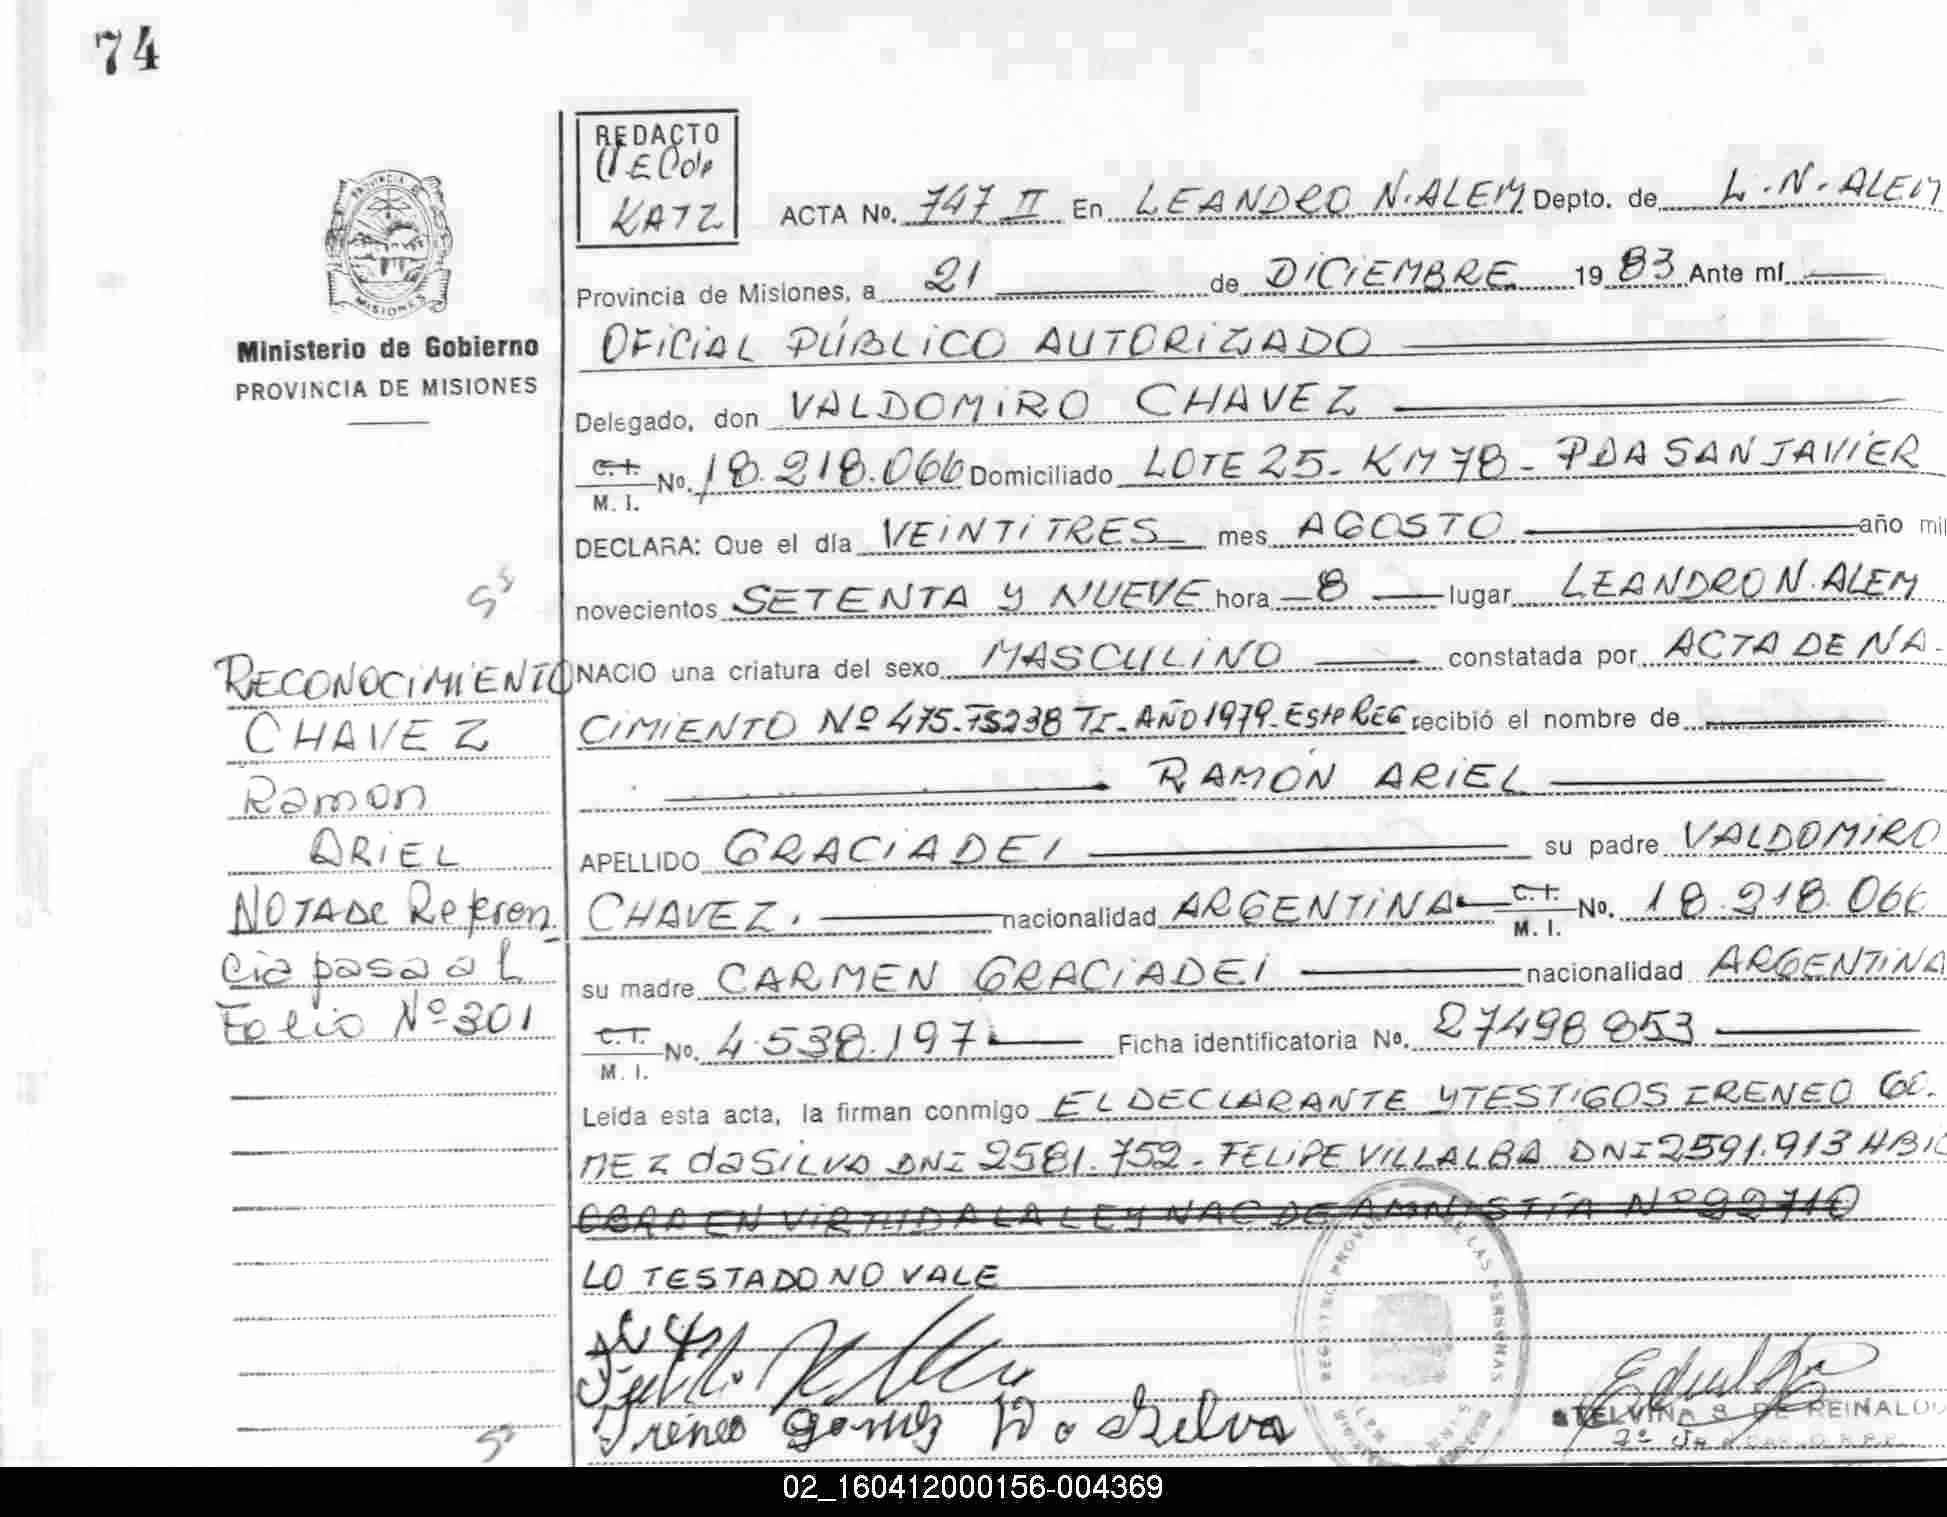 74
REDACTO
KATZ
ACTA No. 747 II En LEANDRO N. ALEM Depto. de L. N. ALEM
Provincia de Misiones, a 21 de DICIEMBRE 1983 Ante mí
PROVINCIA DE
MISIONES
Ministerio de Gobierno
PROVINCIA DE MISIONES
OFICIAL PÚBLICO AUTORIZADO
Delegado, don VALDOMIRO CHAVEZ
C. I.
M. I. No. 18.218.066 Domiciliado LOTE 25 - KM 78 - PDA SAN JAVIER
DECLARA: Que el día VEINTITRES mes AGOSTO año mil
novecientos SETENTA Y NUEVE hora 8 lugar LEANDRO N. ALEM
NACIO una criatura del sexo MASCULINO constatada por ACTA DE NA-
CIMIENTO Nº 475. Fs 238 TI - AÑO 1979 - Este REG recibió el nombre de
RAMÓN ARIEL
APELLIDO GRACIADEI su padre VALDOMIRO
CHAVEZ. nacionalidad ARGENTINA C. I.
M. I. No. 18.218.066
su madre CARMEN GRACIADEI nacionalidad ARGENTINA
C. I.
M. I. No. 4.538.197 Ficha identificatoria No. 27498853
Leída esta acta, la firman conmigo EL DECLARANTE Y TESTIGOS IRENEO GO.
MEZ da SILVA DNI 2581.752 - FELIPE VILLALBA DNI 2591.913 HBIC
OBRA EN VIRTUD A LA LEY NAC DE AMNISTIA Nº 22710
LO TESTADO NO VALE
Ireneo Gomez Da Silva
RECONOCIMIENTO
CHAVEZ
Ramon
ARIEL
NOTA DE Referen
cia pasa al
Folio Nº 301
REGISTRO PROV DE LAS PERSONAS
ETELVINA S. DE REINALDO
02_160412000156-004369